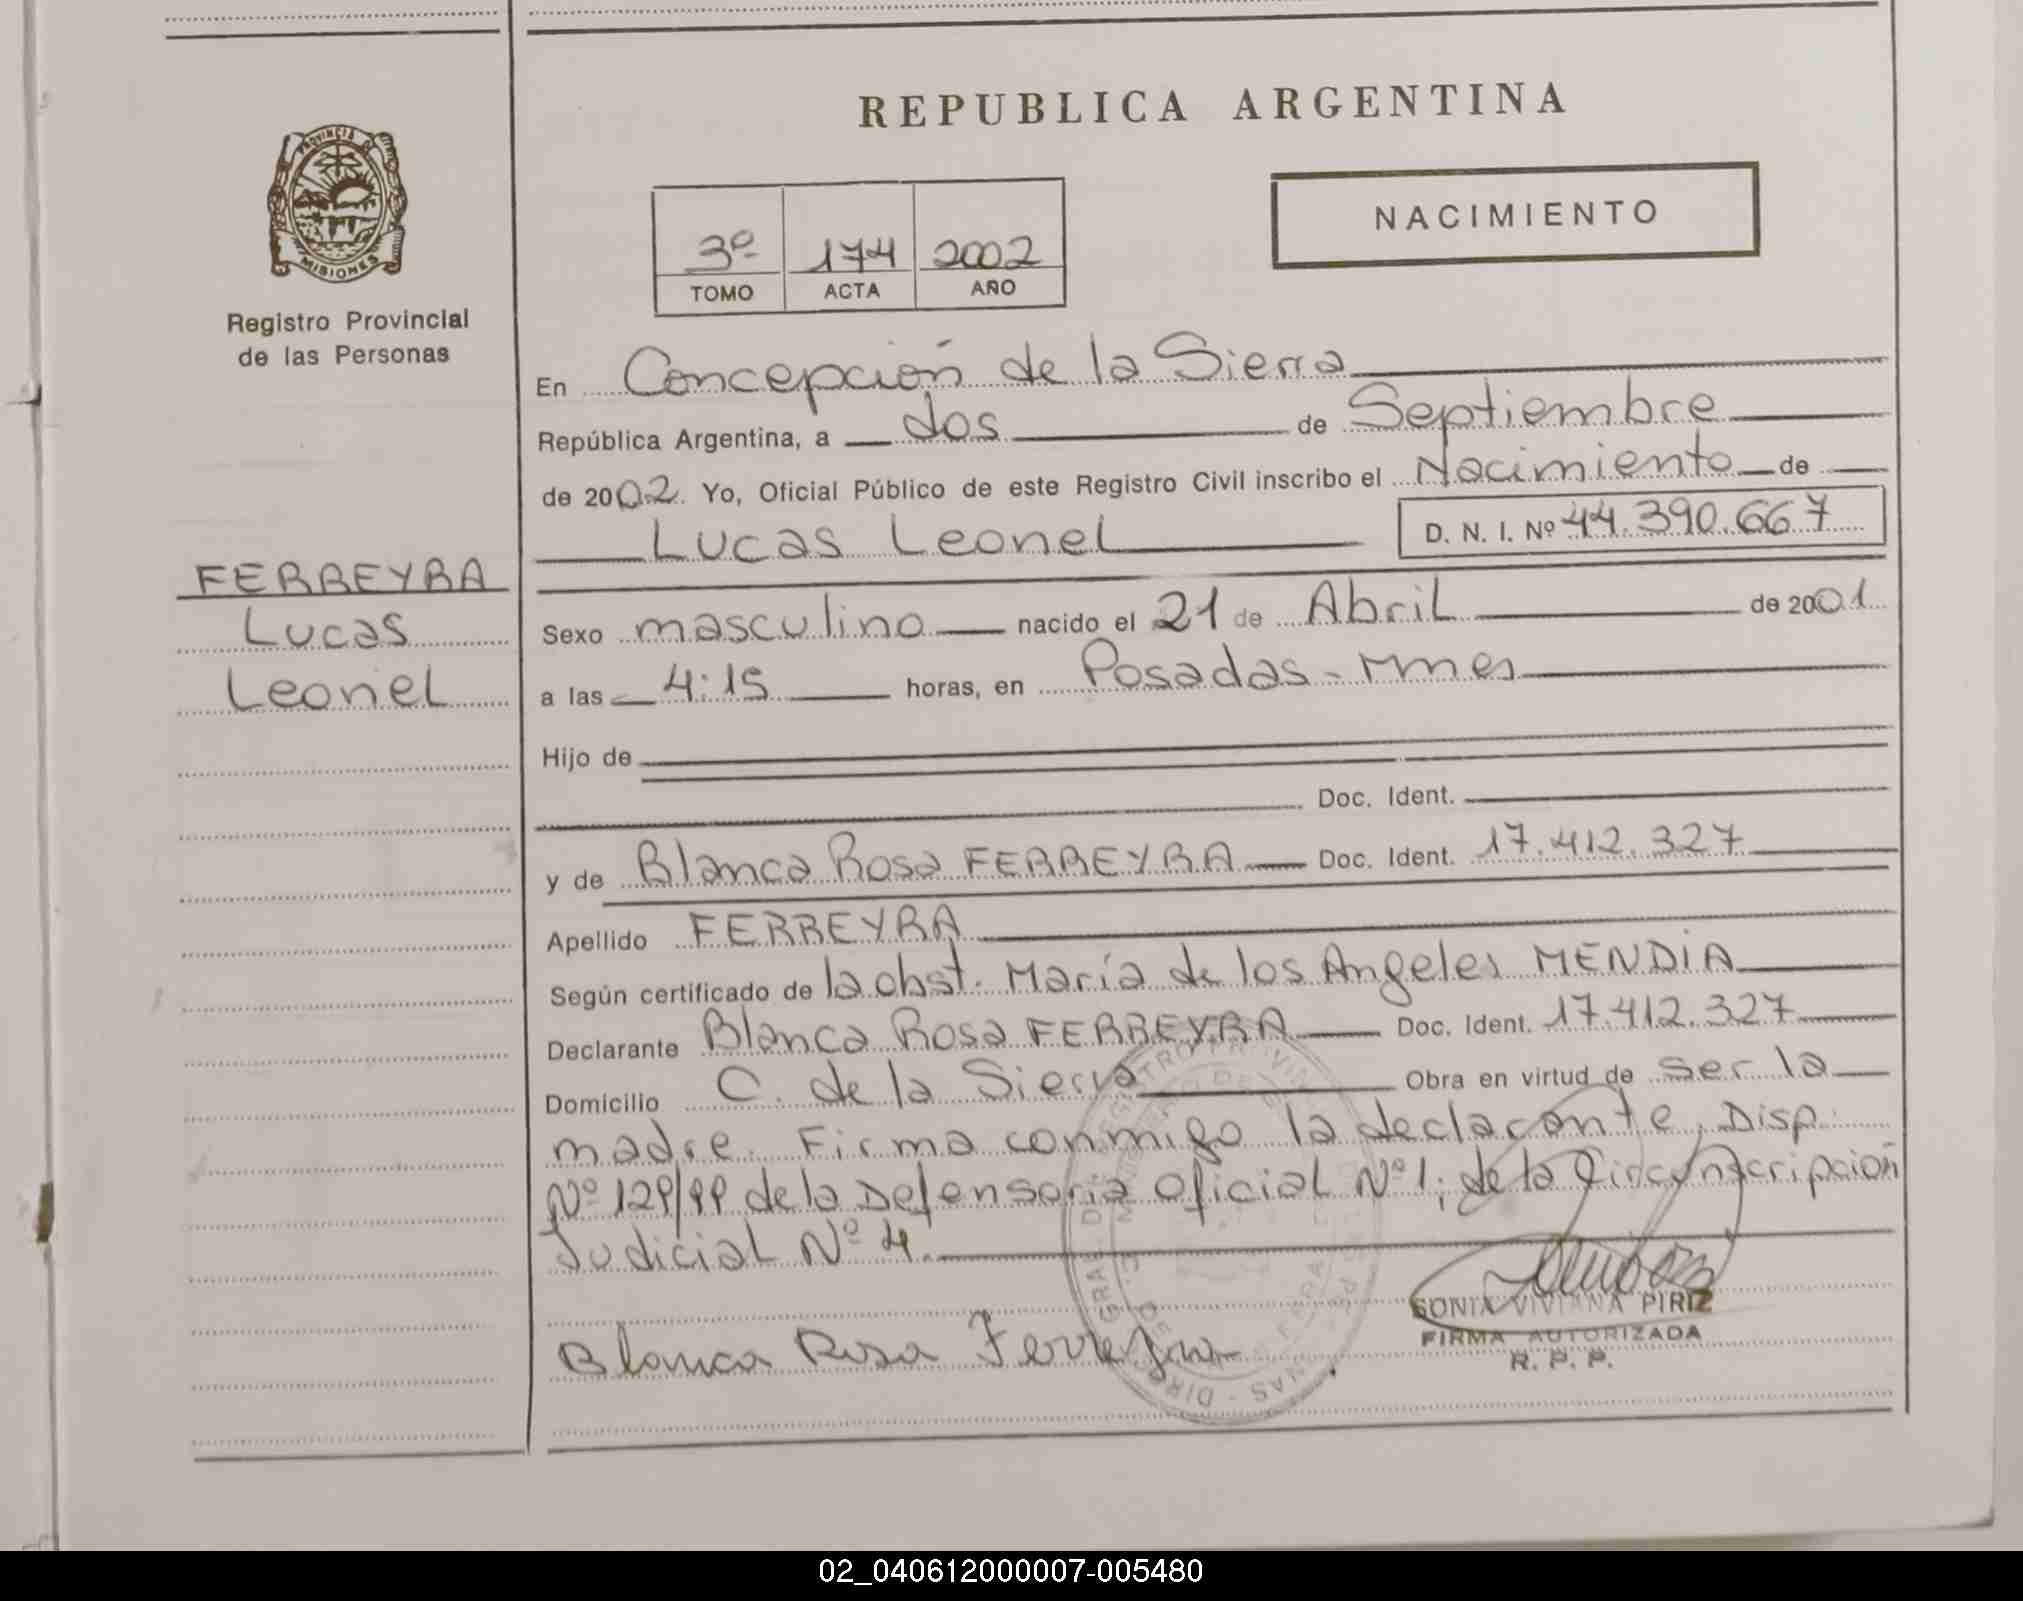 REPUBLICA ARGENTINA
PROVINCIA DE
MISIONES
Registro Provincial
de las Personas
3º 174 2002
TOMO ACTA AÑO
NACIMIENTO
En Concepción de la Sierra
República Argentina, a dos de Septiembre
de 2002. Yo, Oficial Público de este Registro Civil inscribo el Nacimiento de
Lucas Leonel D. N. I. Nº 44.390.667
FERREYRA
Lucas
Leonel
Sexo masculino nacido el 21 de Abril de 2001
a las 4:15 horas, en Posadas - Mnes
Hijo de
Doc. Ident.
y de Blanca Rosa FERREYRA Doc. Ident. 17.412.327
Apellido FERREYRA
Según certificado de la obst. María de los Angeles MENDIA
Declarante Blanca Rosa FERREYRA Doc. Ident. 17.412.327
Domicilio C. de la Sierra Obra en virtud de ser la
madre. Firma conmigo la declarante, Disp.
Nº 129/99 de la Defensoria Oficial Nº 1; de la Circunscripcion
Judicial Nº 4.
Blanca Rosa Ferreyra
SONIA VIVIANA PIRIZ
FIRMA AUTORIZADA
R. P. P.
02_040612000007-005480